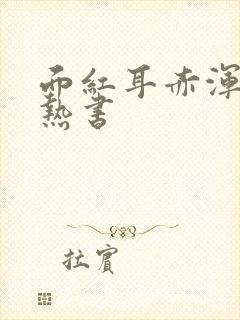 面紅耳赤渾
熱書
拉賓